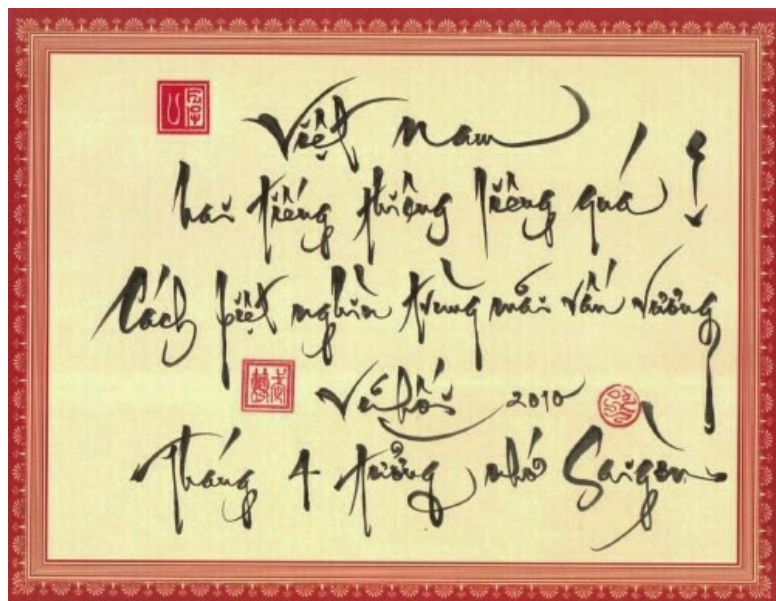 Việt Nam
hai tiếng thiêng liêng quá !
Cách biệt nghìn trùng mãi vấn vương
Vũ Hối 2010
Tháng 4 tưởng nhớ Saigon